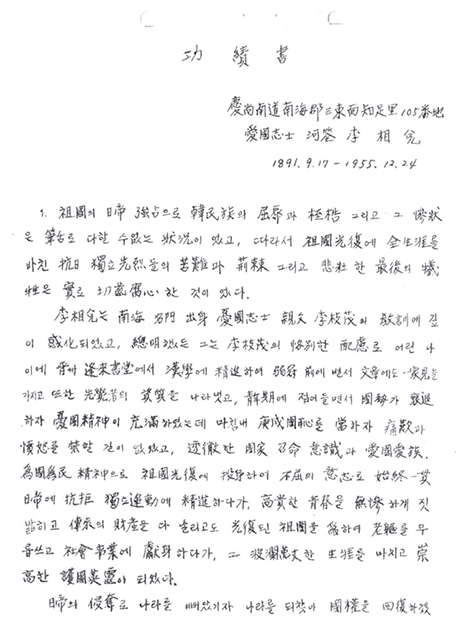 功績書
慶尙南道南海郡三東面知足里105番地
愛國志士 河蓉 李相兌
1891.9.17-1955.12.24
1. 祖國의 日帝 强占으로 韓民族의 屈辱과 桎梏 그리고 그 慘狀
은 筆舌로 다할 수 없는 狀況이 였고, 따라서 祖國光復에 全生涯를
바친 抗日 獨立先烈들의 苦難과 荊棘 그리고 悲壯한 最後의 犧
牲은 實로 切齒腐心한 것이 였다.
李相兌는 南海 名門 出身 憂國志士 親父 李枝茂의 敎訓에 깊
이 感化되었고, 聰明했든 그는 李枝茂의 恪別한 配慮로 어린 나
이에 蓬萊書堂에서 漢學에 精進하여 弱冠 前에 벌서 文章에도 一家見을
가지고 또한 先覺者의 資質을 나타냇고, 靑年期에 접어들면서 國勢가 衰退
하자 憂國精神이 充滿하였는데 마침내 庚戌國恥를 當하자 痛歎과
憤怒를 禁할 길이 없었고, 透徹한 國家 召命 意識과 愛國愛族,
爲國爲民 精神으로 祖國光復에 投身하여 不屈의 意志로 始終一貫
日帝에 抗拒 獨立運動에 精進하다가, 高貴한 靑春을 無慘하게 짓
밟히고 傳來의 財産을 다 날리고도 光復된 祖國을 爲하여 老軀를 무
릅쓰고 社會事業에 獻身하다가, 그 波瀾萬丈한 生涯를 마치고 崇
高한 護國英靈이 되었다.
日帝의 侵奪로 나라를 빼았기자 나라를 되찾아 國權을 回復하겠